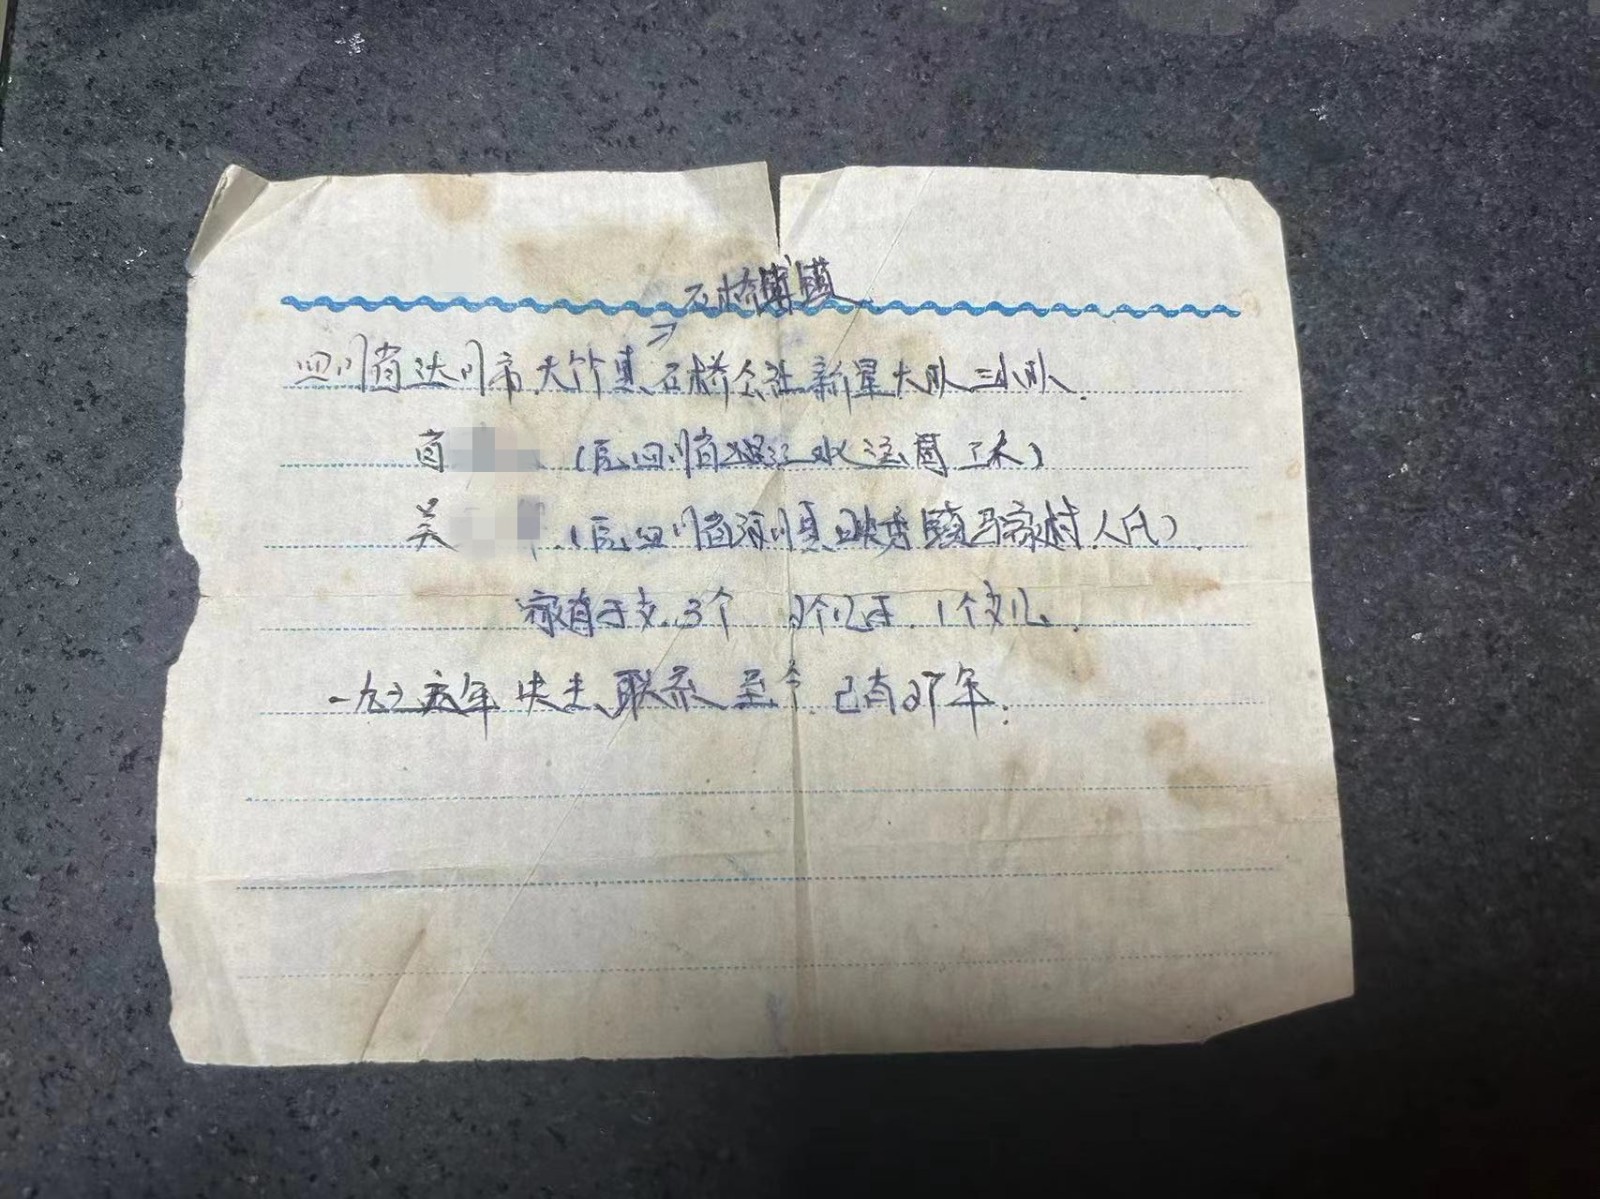 石桥镇
四川省达川市大竹县石桥公社新星大队三小队.
肖 (原四川省 水运局 )
吴 (原四川省汶川县映秀镇马家村人氏).
家有子女.3个 2个儿子.1个女儿.
一九 年失去联系至今.已有27年.